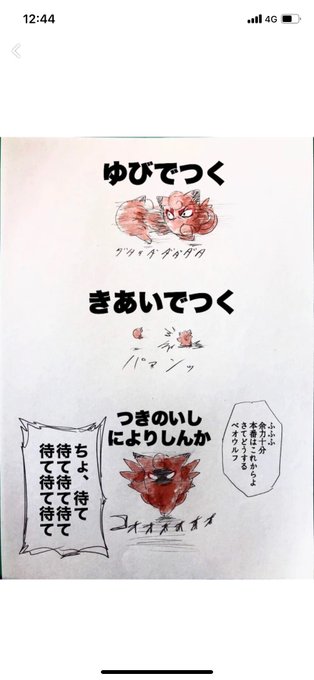 12:44
4G
ゆびでつく
ダダダダダダダ
きあいでつく
パァンッ
つきのいし
によりしんか
ふふふ
余力十分
本番はこれからよ
さてどうする
ベオウルフ
ちょ、待て
待て待て待て
待て待て待て
ゴオオオオオオ